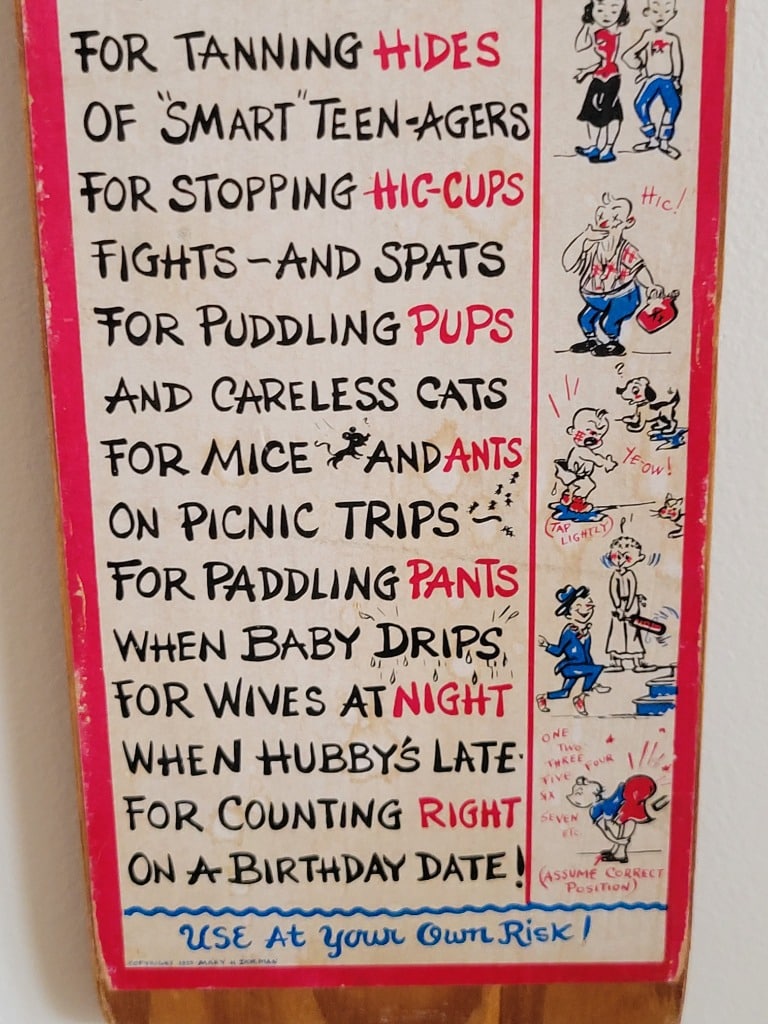 FOR TANNING HIDES
OF "SMART" TEEN-AGERS
FOR STOPPING HIC-CUPS
FIGHTS - AND SPATS
FOR PUDDLING PUPS
AND CARELESS CATS
FOR MICE AND ANTS
ON PICNIC TRIPS -
FOR PADDLING PANTS
WHEN BABY DRIPS
FOR WIVES AT NIGHT
WHEN HUBBY'S LATE.
FOR COUNTING RIGHT
ON A BIRTHDAY DATE!
HIC!
?
YE-OW!
(TAP
LIGHTLY)
ONE
TWO
THREE FOUR
FIVE
SEVEN
ETC.
(ASSUME CORRECT
POSITION)
USE At Your Own Risk!
COPYRIGHT MARY H DORMAN